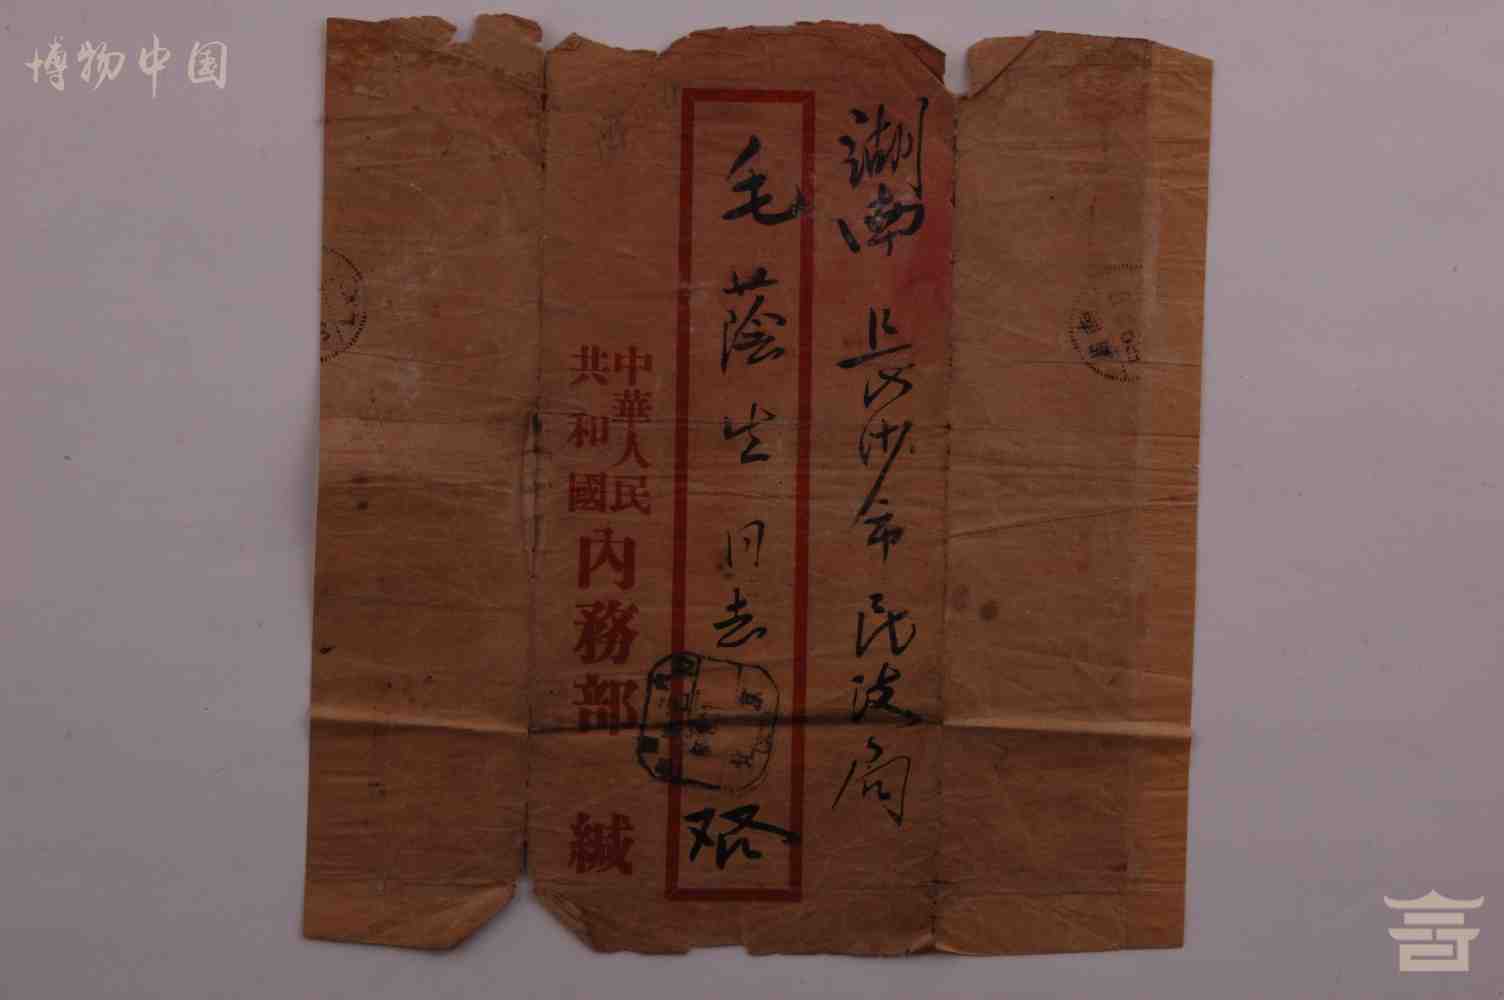 博物中国
湖南 長沙市民政局
毛蔭生 同志
中華人民
共和國
內務部 緘